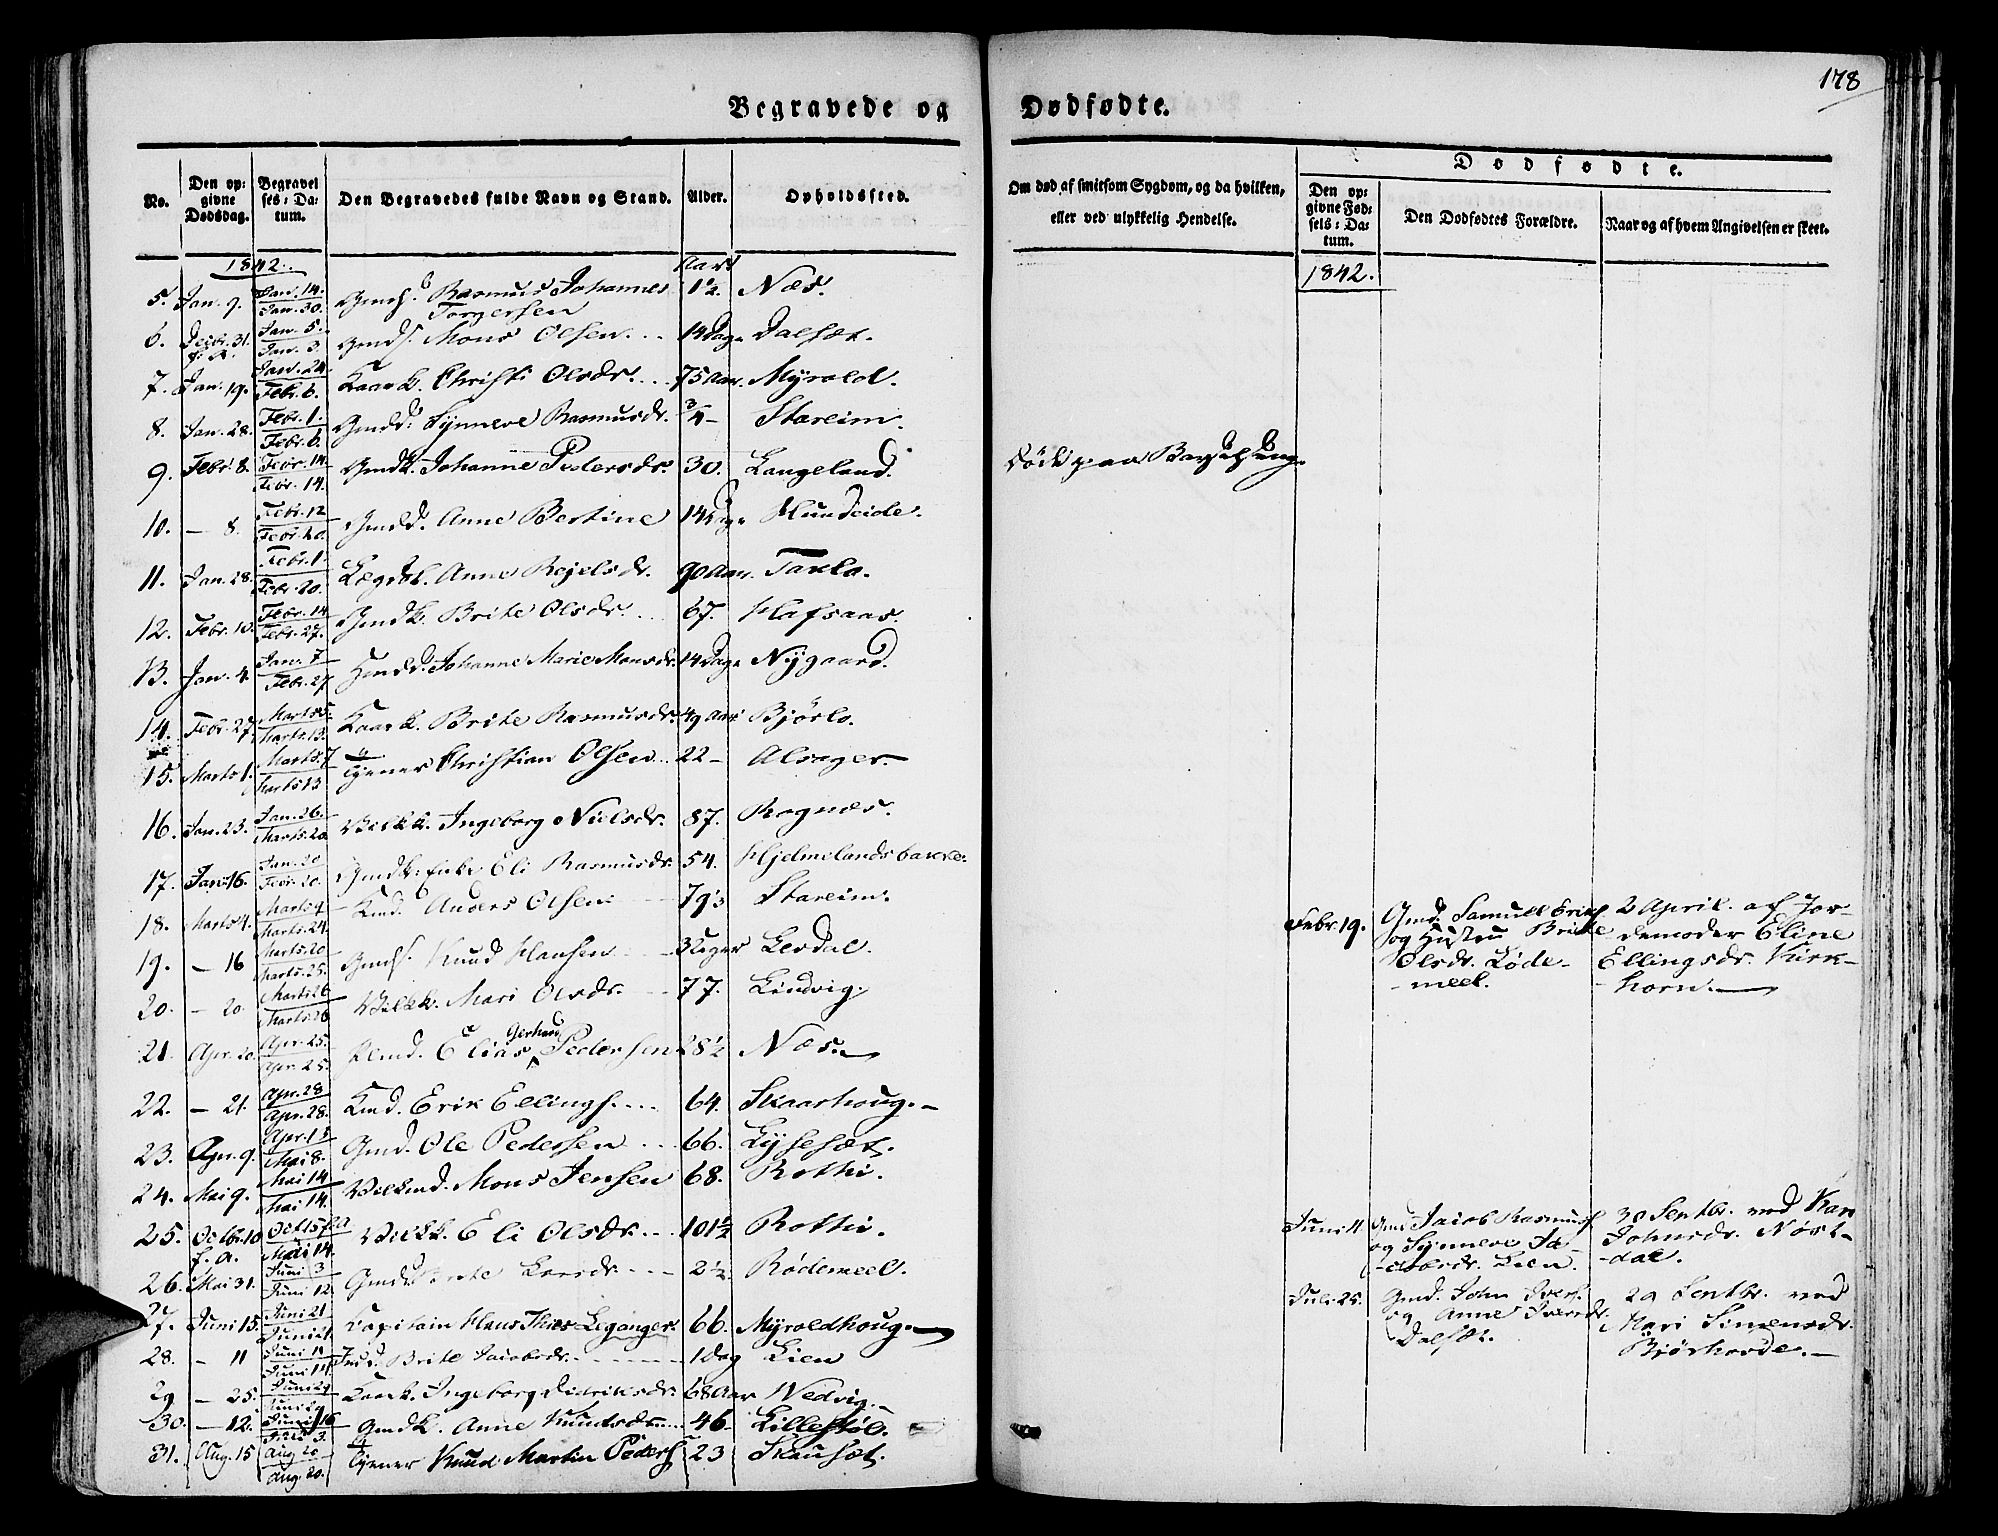 178
Begravede og Dødfødte.
No. Den opgivne Dødsdag. Begravelses-Datum. Den Begravedes fulde Navn og Stand. Alder. Opholdssted.
Om død af smitsom Sygdom, og da hvilken, eller ved ulykkelig Hendelse.
Dødfødte.
Den opgivne Fødsels-Datum. Den Dødfødtes Forældre. Naar og af hvem Angivelsen er skeet.
1842. Aar
5. Jan. 9. Jan. 14. Jan. 30. Gmds. Rasmus Johannes Torgersen 1½. Næs.
6. Decbr. 31. f. A. Jan. 5. Jan. 3. Gmds. Mons Olsen 14 Dage Dalsæt.
7. Jan. 19. Jan. 24. Febr. 6. Kaark. Christi Olsdr. 75 Aar. Myrold.
8. Jan. 28. Febr. 1. Febr. 6. Gmdd. Synneve Rasmusdr. ¾ Stareim.
9. Febr. 8. Febr. 14. Febr. 14. Gmdk. Johanne Pedersdr. 30. Langeland.
Døde paa Barselseng.
10. - 8. Febr. 12 Febr. 20. Gmdd. Anne Bertine 14 Dage Hundeide.
11. Jan. 28. Febr. 1. Febr. 20. Lægdsl. Anne Rejelsdr. 90 Aar. Taxlo.
12. Febr. 10. Febr. 14. Febr. 27. Gmdk. Brite Olsdr. 67. Hafsaas.
13. Jan. 4. Jan. 7 Febr. 27 Hmdd. Johanne Marie Monsdr. 14 Dage Nygaard.
14. Febr. 27. Marts 5. Marts 13. Kaark. Brite Rasmusdr. 49 Aar Bjørlo.
15. Marts 1. Marts 7 Marts 13 Tjener Christian Olsen 22 - Alsager.
16. Jan. 23. Jan. 26. Marts 20. Vilkk. Ingeborg Nielsdr. 87. Rognæs.
17. Jan. 16. Jan. 20 Febr. 20. Gmdk. Enke Eli Rasmusdr. 54. Hjelmelandsbakke.
18. Marts 4. Marts 9 Marts 24. Kmd. Anders Olsen 79 Stareim.
Febr. 19. Gmd. Samuel Eriks. og Hustru Brite Olsdr. Lødemeel. 2 April. af Jordemoder Eline Ellingsdr. Kirkhorn.
19. - 16 Marts 20 Marts 25. Gmds. Knud Hansen 3 Uger Levdal.
20. - 20. Marts 26 Marts 26 Vilkk. Mari Olsdr. 77. Lindvig.
21. Apr. 20. Apr. 25. Apr. 25. Kmd. Elias Gerhard Pedersen 28½ Næs.
22. - 21. Apr. 28 Apr. 28. Kmd. Erik Ellings. 64. Skaarhoug.
23. Apr. 9. Apr. 15 Mai 8. Gmd. Ole Pedersen 66. Lysesæt.
24. Mai 9. Mai 14 Mai 14. Vilkmd. Mons Jensen 68. Rothi.
25. Octbr. 10 f. A. Oct 15 f. A Mai 14. Vilkk. Eli Olsdr. 101½ Rothi.
Juni 11. Gmd. Jacob Rasmuss. og Synneve Jacobsdr. Lien. 30 Septbr. ved Kari Johnsdr. Nøstdal.
26. Mai 31. Juni 3 Juni 12. Gmdd. Larsdr. 2½. Rødemeel.
Juli 25. Gmd. John Ivers. og Anne Iversdr. Dalsæt. 29 Septbr. ved Mari Simensdr. Bjørhovde.
27. Juni 15. Juni 21 Juni 21. Capitain Hans Thies Leganger 66. Myroldhoug.
28. - 11 Juni 14 Juni 14. Brite Jacobsdr. 1 Dag Lien
29 - 25. Juni 29 Juni 29 Kaark. Ingeborg Didriksdr. 68 Aar Wedvig.
30. - 12. Juni 16 Juli 3. Gmdk. Anne Knudsdr. 46. Lillestøl.
31. Aug. 15 Aug 20 Aug. 20. Tjener Knud Martin Peders. 23 Skausæt.